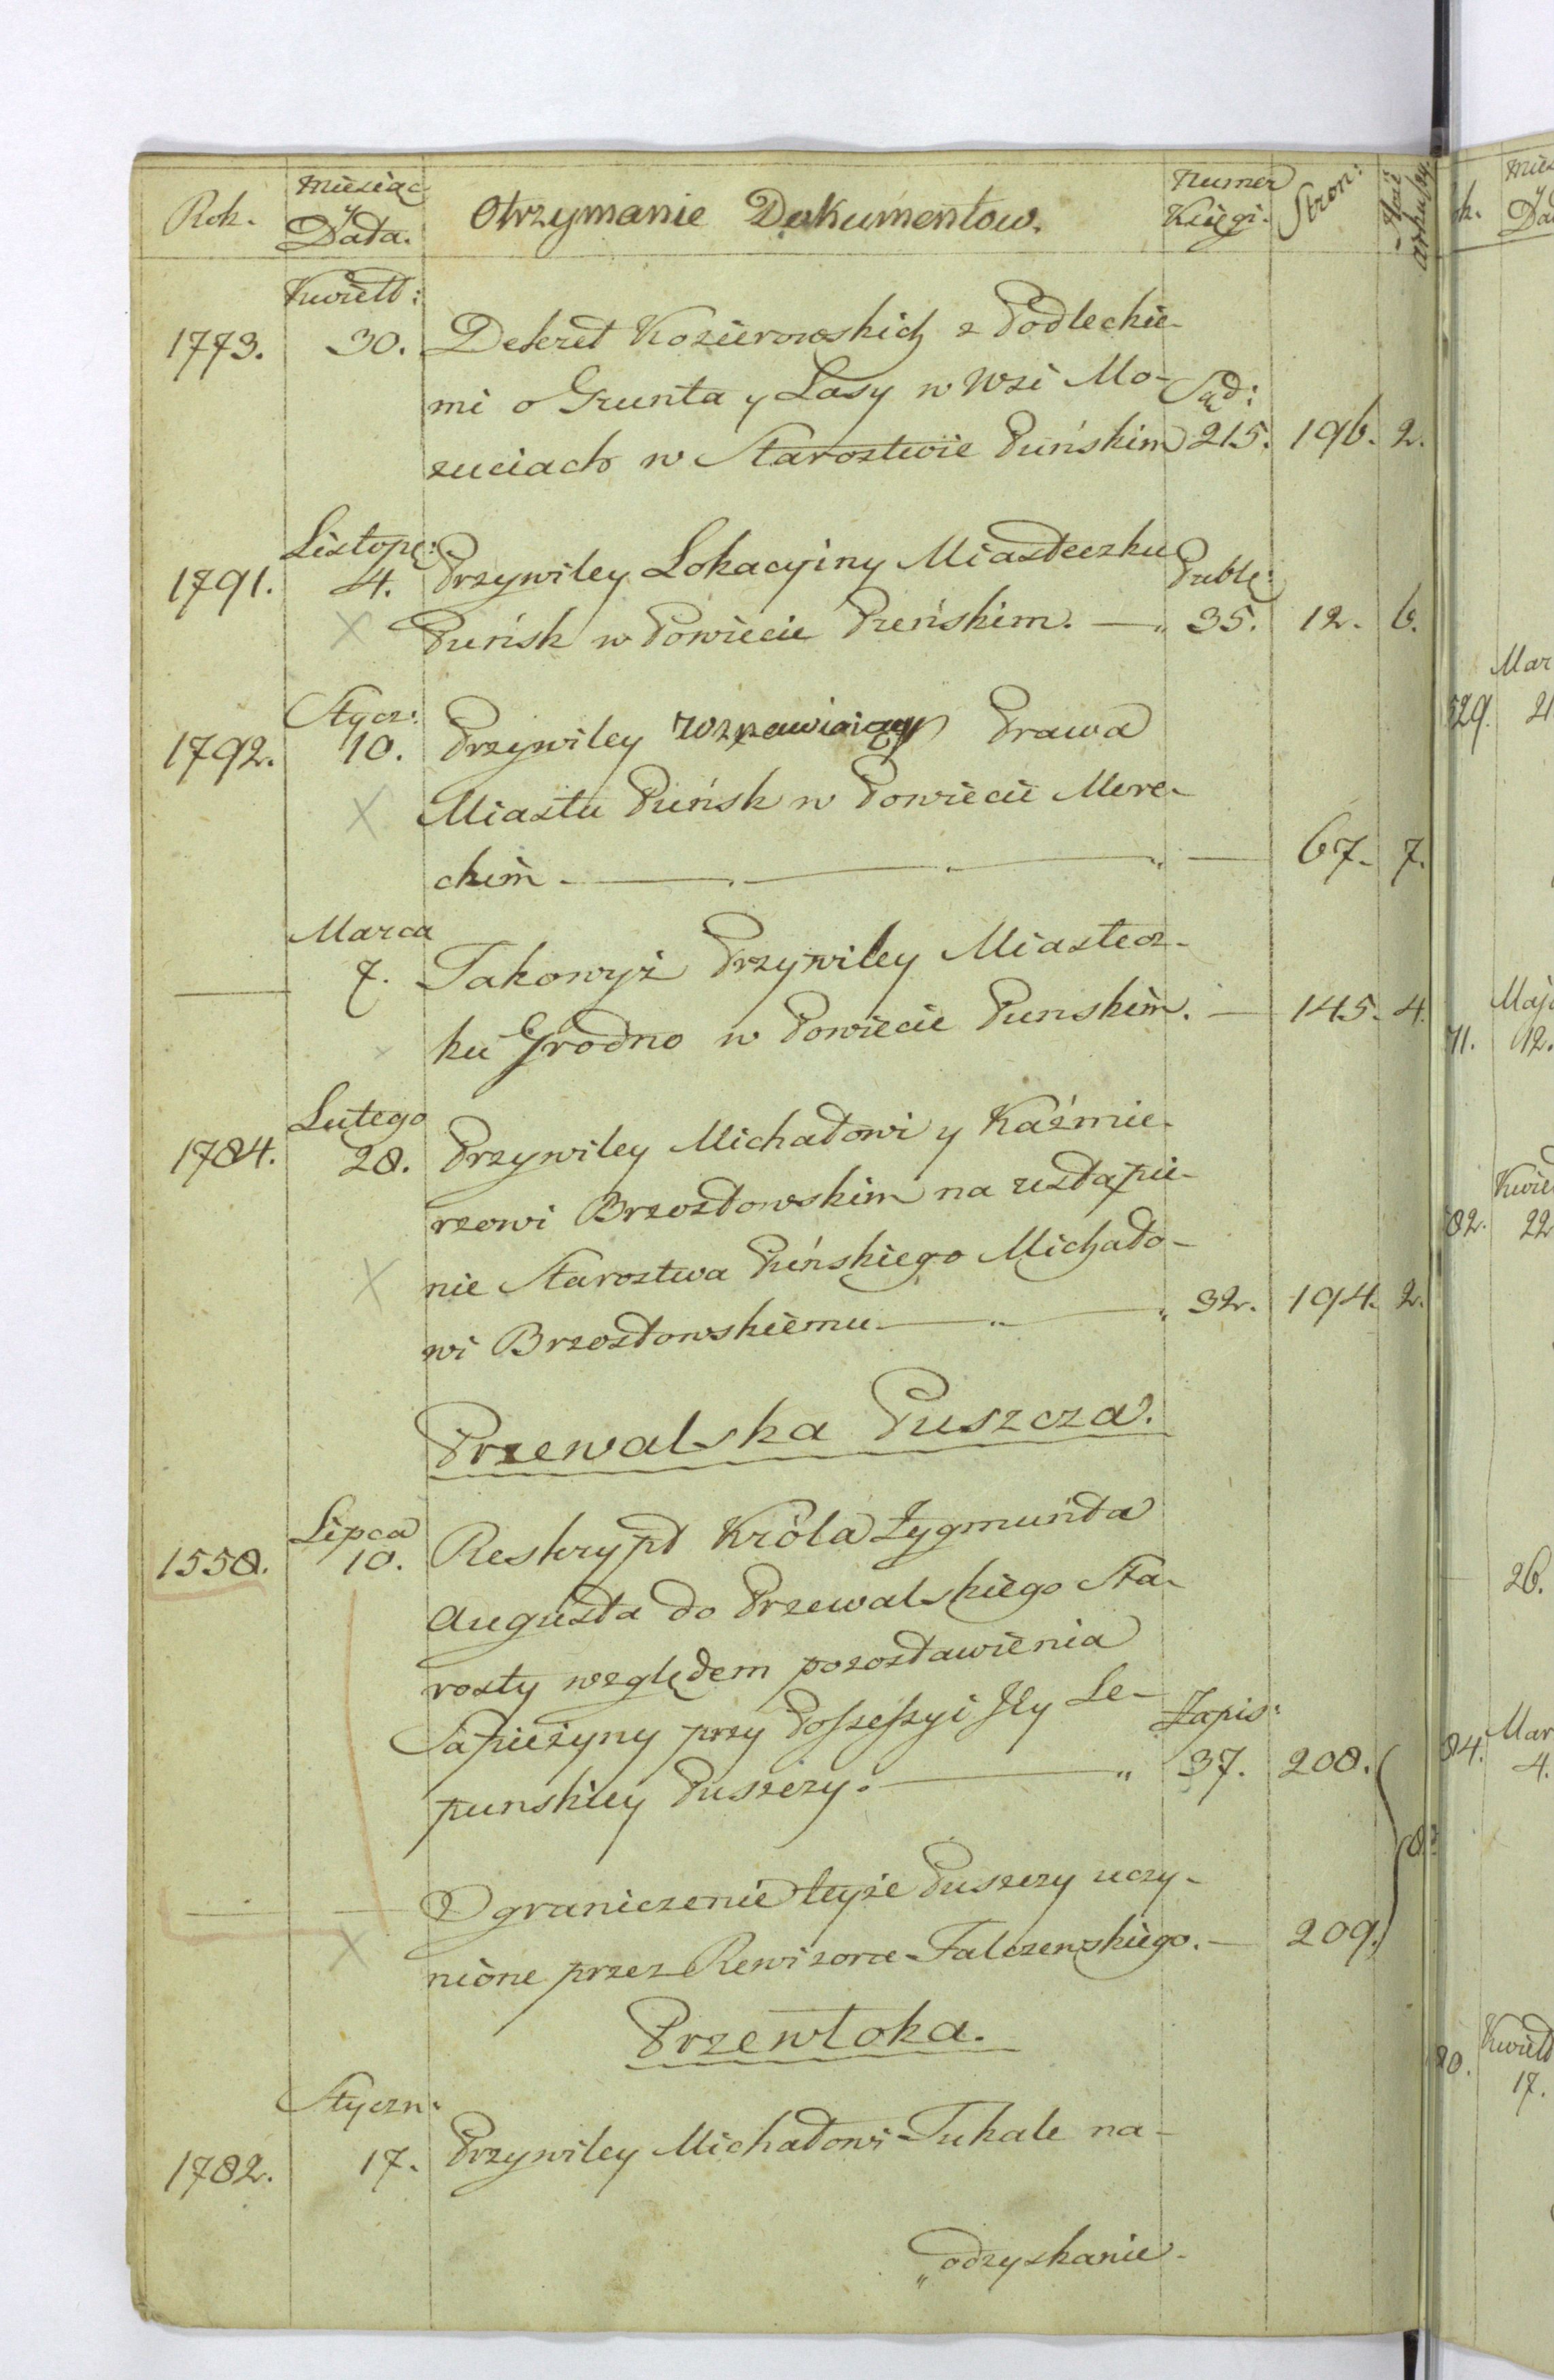 Rok. Miesiąc y Data. Otrzymanie Dokumentow. Numer Księgi. Stron: Ilość arkuszy.
Kwiett:
1773. 30. Dekret Kozierowskich z Podleckie-
mi o Grunta y Lasy w Wsi Mo- Sąd:
zuciach w Starostwie Puńskim 215. 196. 2.
Listopę:
1791. 4. Przywiley Lokacyiny Miasteczku Publę:
Puńsk w Powiecie Preńskim. — 35. 12. 6.
Stycz:
1792. 10. Przywiley Prawa
Miastu Puńsk w Powiecie Mere-
ckim — 67. 7.
Marca
— 7. Takowyż Przywiley Miastecz-
ku Grodno w Powiecie Punskim. — 145. 4.
Lutego
1784. 28. Przywiley Michałowi y Kaźmie-
rzowi Brzostowskim na ustąpie-
nie Starostwa Puńskiego Michało-
wi Brzostowskiemu — 32. 194. 2.
Przewalska Puszcza.
Lipca
1558. 10. Reskrypt Króla Zygmunta
Augusta do Przewalskiego Sta-
rosty względem pozostawienia
Sapieżyny przy Possessyi Jey Le- Zapis:
punskiey Puszczy. — 37. 208.
8.
— — Ograniczenie teyże Puszczy uczy-
nione przez Rewizora Falczewskiego. — 209.
Przewłoka.
Styczn:
1782. 17. Przywiley Michałowi Tukale na-
„odzyskanie-